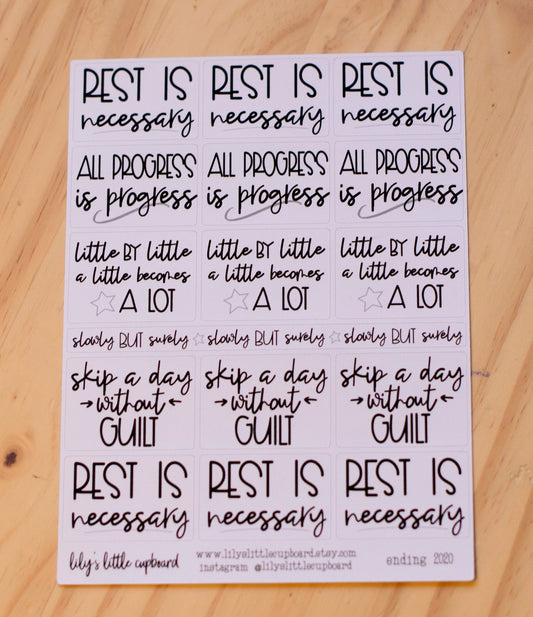 REST IS REST IS REST IS
necessary necessary necessary
ALL PROGRESS ALL PROGRESS ALL PROGRESS
is progress is progress is progress
little BY little little BY little little BY little
a little becomes a little becomes a little becomes
A LOT A LOT A LOT
slowly BUT surely slowly BUT surely slowly BUT surely
skip a day skip a day skip a day
without without without
GUILT GUILT GUILT
REST IS REST IS REST IS
necessary necessary necessary
lily's little cupboard www.lilyslittlecupboard.etsy.com ending 2020
instagram @lilyslittlecupboard